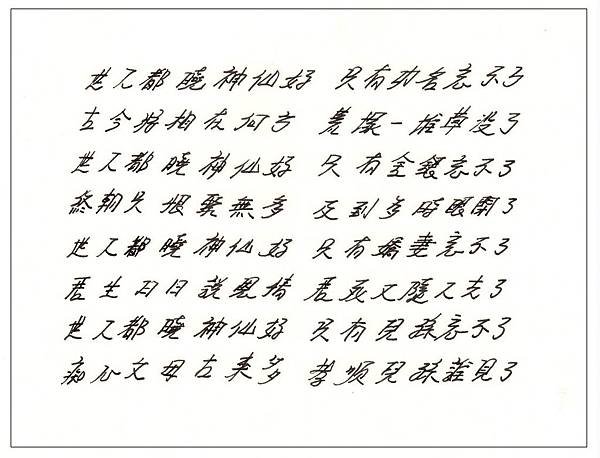 世人都曉神仙好 只有功名忘不了
古今將相在何方 荒塚一堆草沒了
世人都曉神仙好 只有金銀忘不了
終朝只恨聚無多 及到多時眼閉了
世人都曉神仙好 只有嬌妻忘不了
君生日日說恩情 君死又隨人去了
世人都曉神仙好 只有兒孫忘不了
痴心父母古來多 孝順兒孫誰見了